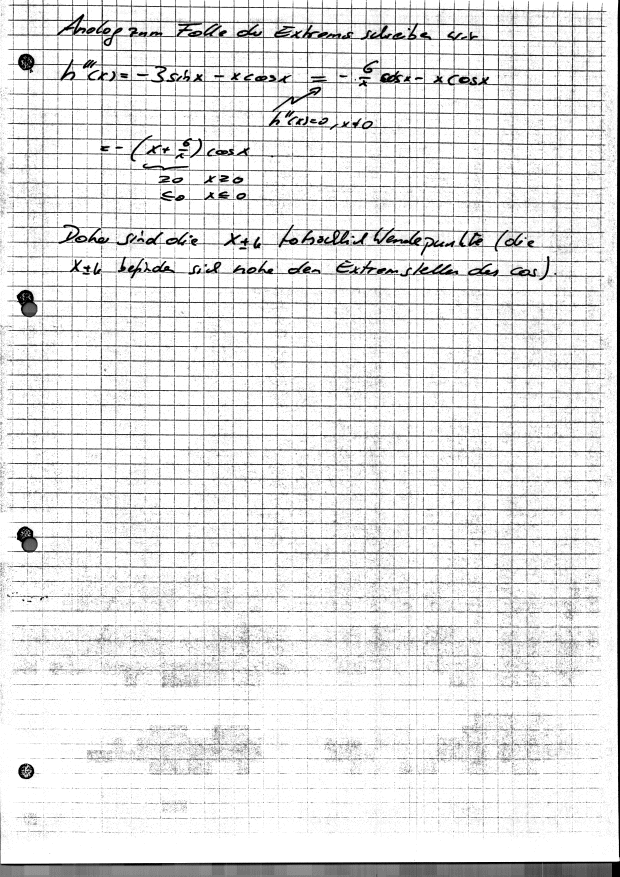 Analog zum Falle des Extrems schreiben wir
h'''(x) = -3 sin x - x cos x = - 6/x cos x - x cos x
h''(x)=0, x≠0
= - (x + 6/x) cos x
≥0 x≥0
≤0 x≤0
Daher sind die x±k tatsächlich Wendepunkte (die
x±k befinden sich nahe den Extremstellen des cos).